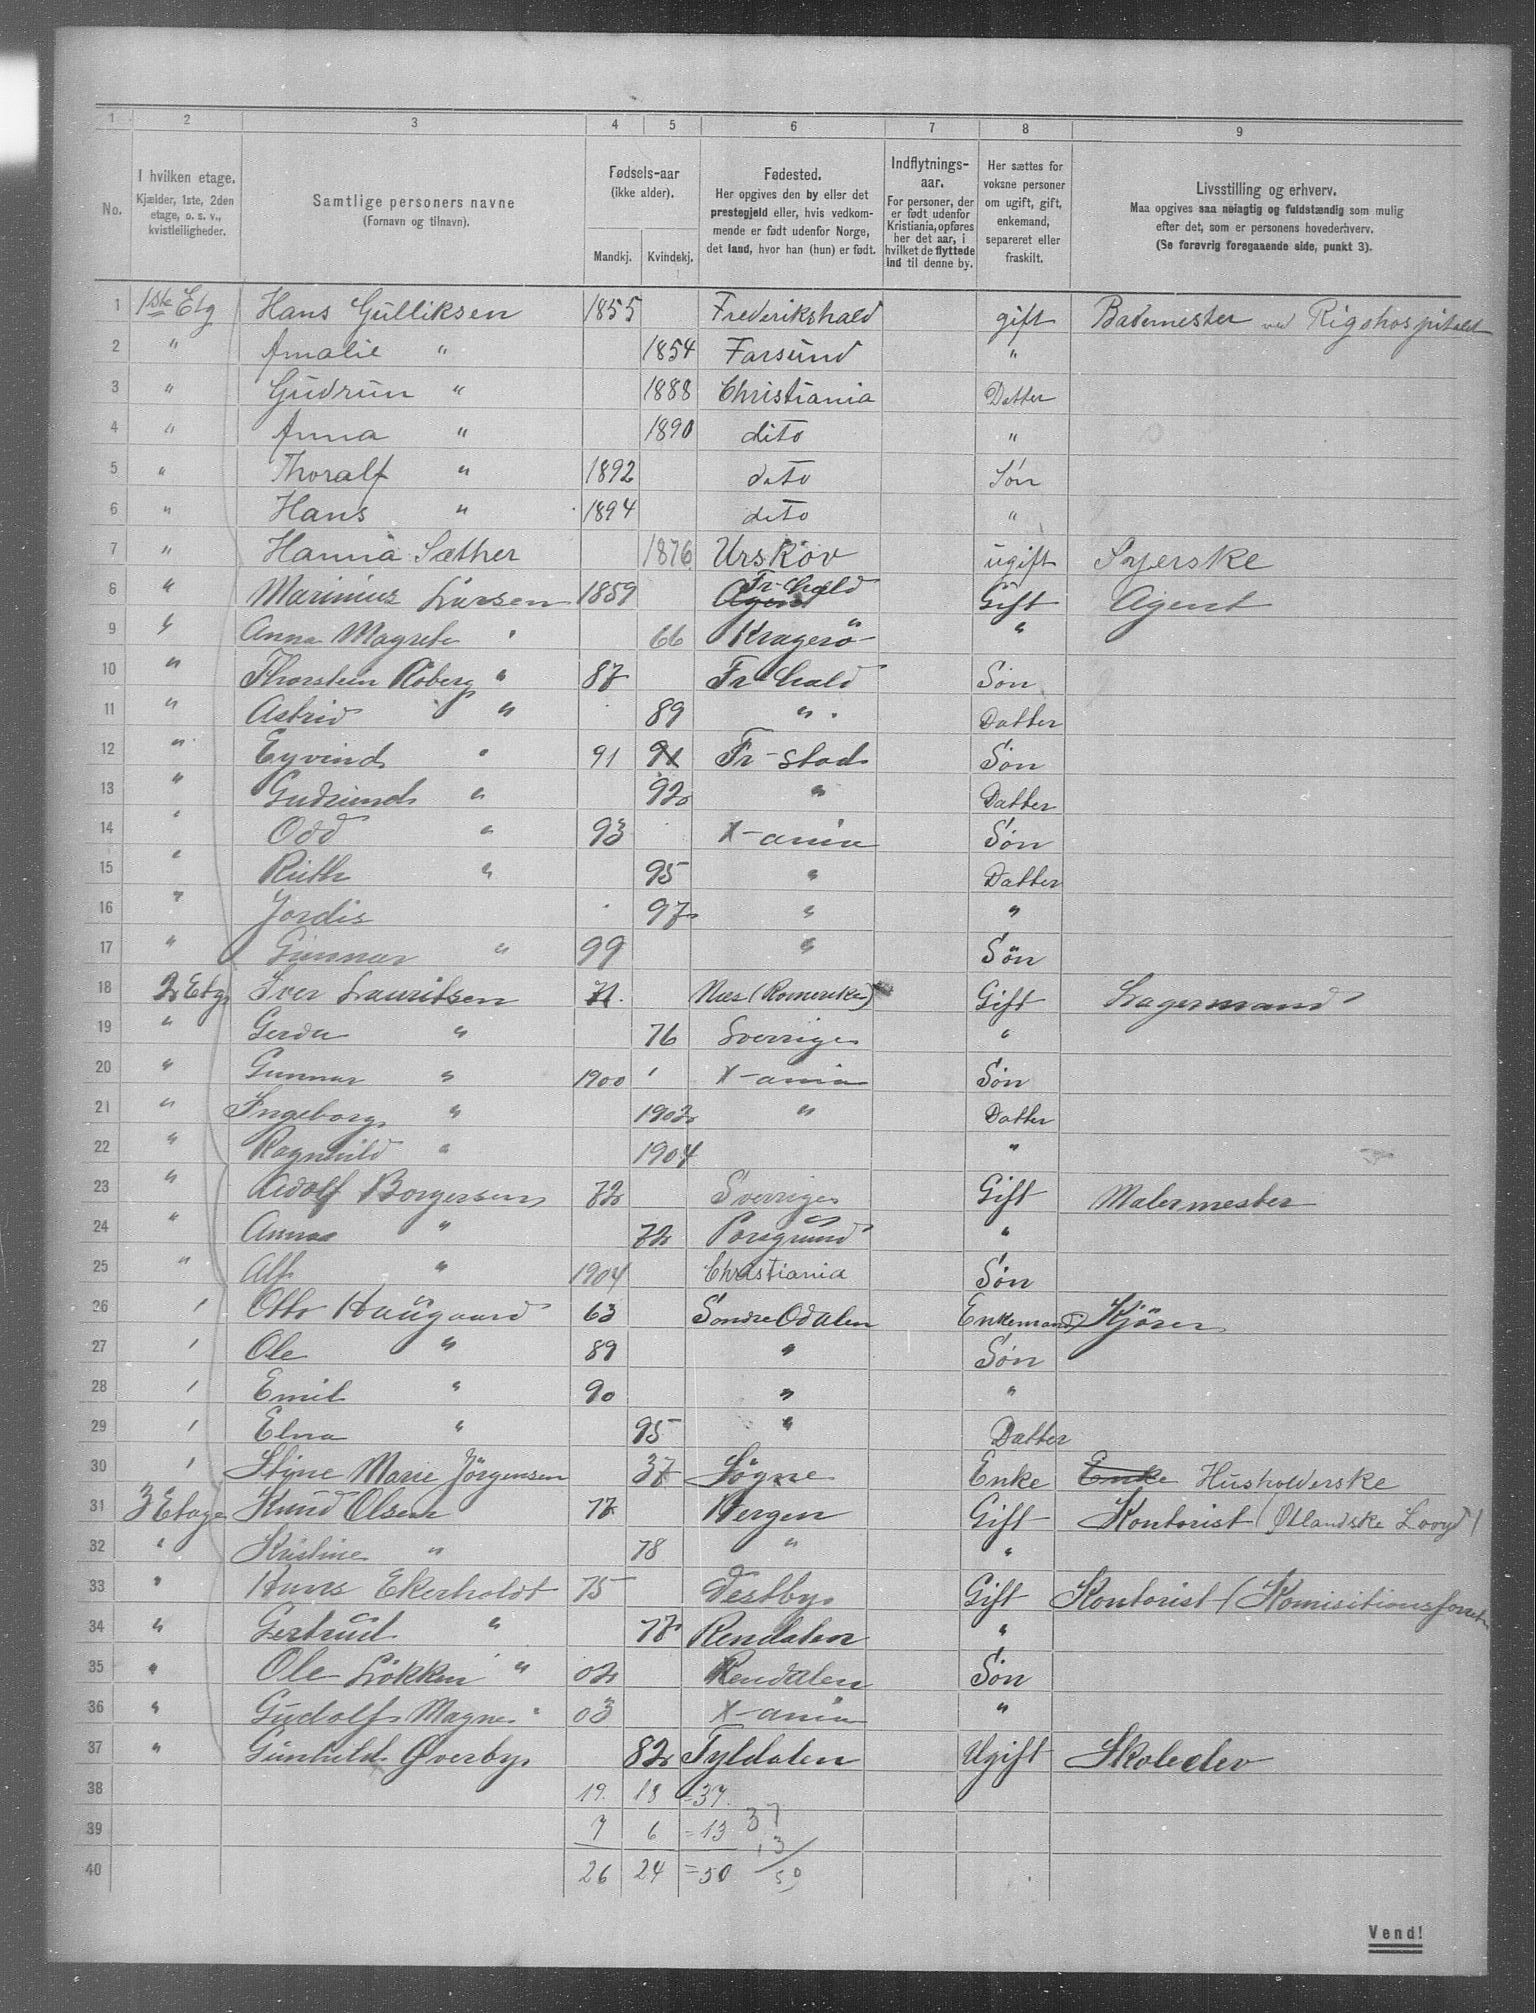 1 2 3 4 5 6 7 8 9
No. I hvilken etage. Kjælder, 1ste, 2den etage, o. s. v., kvistleiligheder. Samtlige personers navne (Fornavn og tilnavn). Fødsels-aar (ikke alder). Mandkj. Kvindekj. Fødested. Her opgives den by eller det prestegjeld eller, hvis vedkommende er født udenfor Norge, det land, hvor han (hun) er født. Indflytnings-aar. For personer, der er født udenfor Kristiania, opføres her det aar, i hvilket de flyttede ind til denne by. Her sættes for voksne personer om ugift, gift, enkemand, separeret eller fraskilt. Livsstilling og erhverv. Maa opgives saa nøiagtig og fuldstændig som mulig efter det, som er personens hovederhverv. (Se forøvrig foregaaende side, punkt 3).
1 1ste Etg Hans Gulliksen 1855 Frederikshald gift Bademester ved Rigshospitalet
2 " Amalie " 1854 Farsund "
3 " Gudrun " 1888 Christiania Datter
4 " Anna " 1890 dito "
5 " Thoralf " 1892 dito Søn
6 " Hans " 1894 dito "
7 " Hanna Sæther 1876 Urskov ugift Syerske
8 " Marinius Larsen 1859 Agent Fr-hald Gift Agent
9 " Anna Magrete " 66 Kragerö "
10 " Thorstein Roberg " 87 Fr-hald Søn
11 " Astrid " " 89 " Datter
12 " Eyvind " 91 91 Fr-stad Søn
13 " Gudrund " 92 " Datter
14 " Odd " 93 X-ania Søn
15 " Ruth " 95 " Datter
16 " Jordis 97 " "
17 " Gunnar " 99 " Søn
18 2 Etg Iver Lauritsen 71. Næs (Romerike) Gift Lagermand
19 " Gerda " 76 Sverrige "
20 " Gunnar " 1900 X-ania Søn
21 " Ingeborg " 1902 " Datter
22 " Ragnhild " 1904 "
23 " Adolf Borgersen 72 Sverrige Gift Malermester
24 " Anna " 72 Porsgrund "
25 " Alf " 1904 Christiania Søn
26 " Otto Haugaard 63 Søndre Odalen Enkemand Kjører
27 " Ole " 89 " Søn
28 " Emil " 90 " "
29 " Elna " 95 " Datter
30 " Styne Marie Jörgensen 37 Søgne Enke Enke Husholderske
31 3 Etage Knud Olsen 77 Bergen Gift Kontorist (Øtlandske Looyd)
32 " Kristine " 78 " "
33 " Hans Ekerholdt 75 Vestby Gift Kontorist (Komisitionsforret
34 " Gertrud " 77 Rendalen "
35 " Ole Løkken " 02 Rendalen Søn
36 " Gudolf Magne " 03 X-ania "
37 " Gunhild Øverby 82 Tyldalen Ugift Skoleelev
38 19. 18 =37.
39 7 6 =13 37
13
40 26 24 =50 50
Vend!